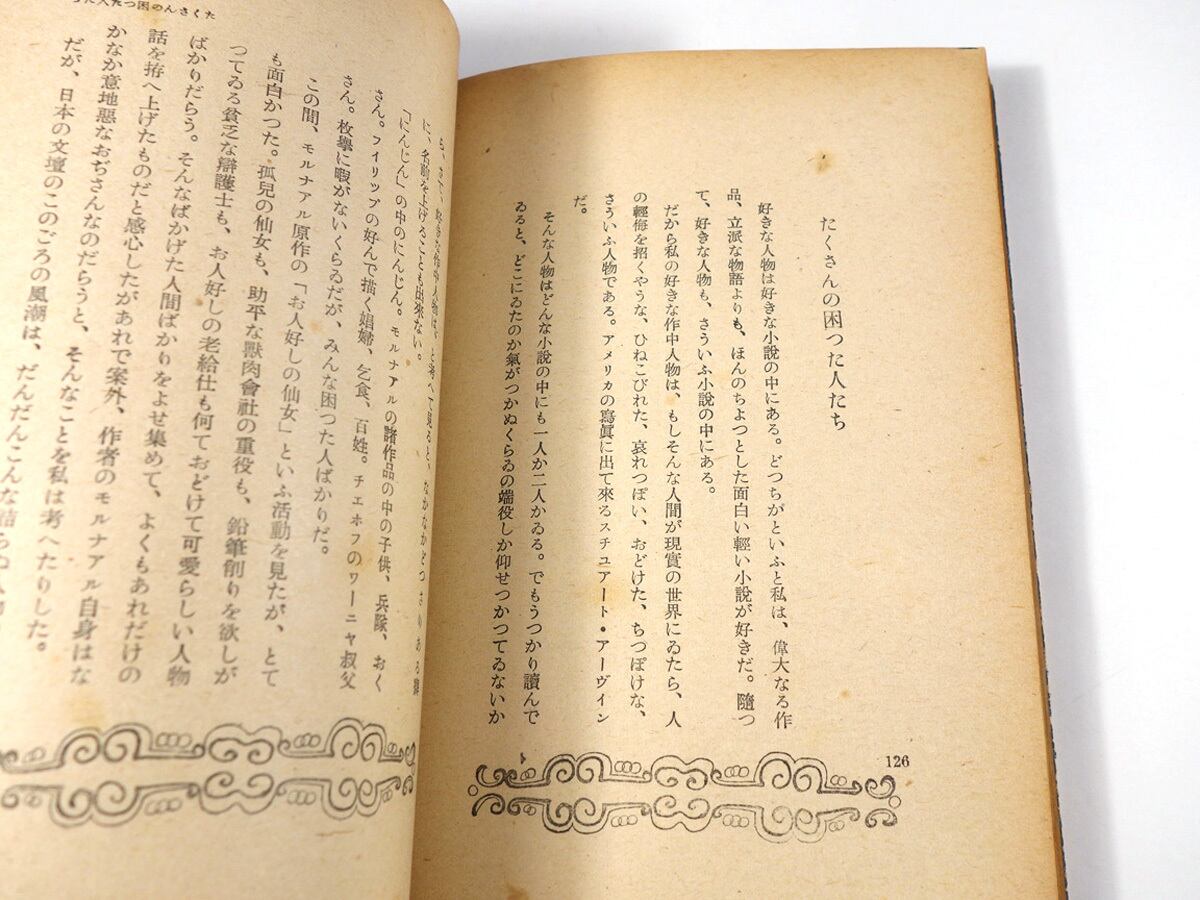 たくさんの困つた人たち
好きな人物は好きな小說の中にある。どつちがといふと私は、偉大なる作
品、立派な物語よりも、ほんのちよつとした面白い輕い小說が好きだ。隨つ
て、好きな人物も、さういふ小說の中にある。
だから私の好きな作中人物は、もしそんな人間が現實の世界にゐたら、人
の輕侮を招くやうな、ひねこびれた、哀れつぽい、おどけた、ちつぽけな、
さういふ人物である。アメリカの寫眞に出て來るスチユアート・アーヴイン
だ。
そんな人物はどんな小說の中にも一人か二人かゐる。でもうつかり讀んで
ゐると、どこにゐたのか氣がつかぬくらゐの端役しか仰せつかつてゐないか
126
たくさんの困つた人たち
ら、さて、好きな作中人物は、と考へて見ると、なかなかどつさりある癖
に、名前を上げることも出來ない。
「にんじん」の中のにんじん。モルナアルの諸作品の中の子供、兵隊、おく
さん。フイリツプの好んで描く娼婦、乞食、百姓。チエホフのワーニヤ叔父
さん。枚擧に暇がないくらゐだが、みんな困つた人ばかりだ。
この間、モルナアル原作の「お人好しの仙女」といふ活動を見たが、とて
も面白かつた。孤兒の仙女も、助平な獸肉會社の重役も、鉛筆削りを欲しが
つてゐる貧乏な辯護士も、お人好しの老給仕も何ておどけて可愛らしい人物
ばかりだらう。そんなばかげた人間ばかりをよせ集めて、よくもあれだけの
話を拵へ上げたものだと感心したがあれで案外、作者のモルナアル自身はな
かなか意地惡なおぢさんなのだらうと、そんなことを私は考へたりした。
だが、日本の文壇のこのごろの風潮は、だんだんこんな詰らぬ人物